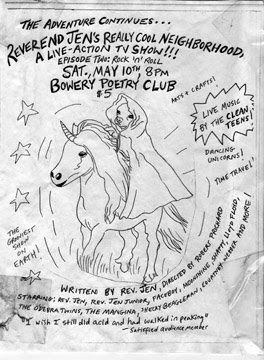 THE ADVENTURE CONTINUES...
REVEREND JEN'S REALLY COOL NEIGHBORHOOD,
A LIVE-ACTION TV SHOW!!!
EPISODE TWO: ROCK 'N' ROLL
SAT, MAY 10TH 8PM
BOWERY POETRY CLUB
$5
ARTS & CRAFTS!
LIVE MUSIC
BY THE CLEAN
TEENS!
DANCING
UNICORNS!
TIME TRAVEL!
THE
GROOVIEST
SHOW
ON
EARTH!
WRITTEN BY REV. JEN, DIRECTED BY ROBERT PRICHARD
STARRING: REV. JEN, REV. JEN JUNIOR, FACEBOY, MOONSHINE, SHAPPY, LLOYD FLOYD,
THE OBERA TWINS, THE MANGINA, HEEKY BEAGLEMAN, COURTNEY WEBER AND MORE!
"I wish I still did acid and had walked in peaking"
- satisfied audience member